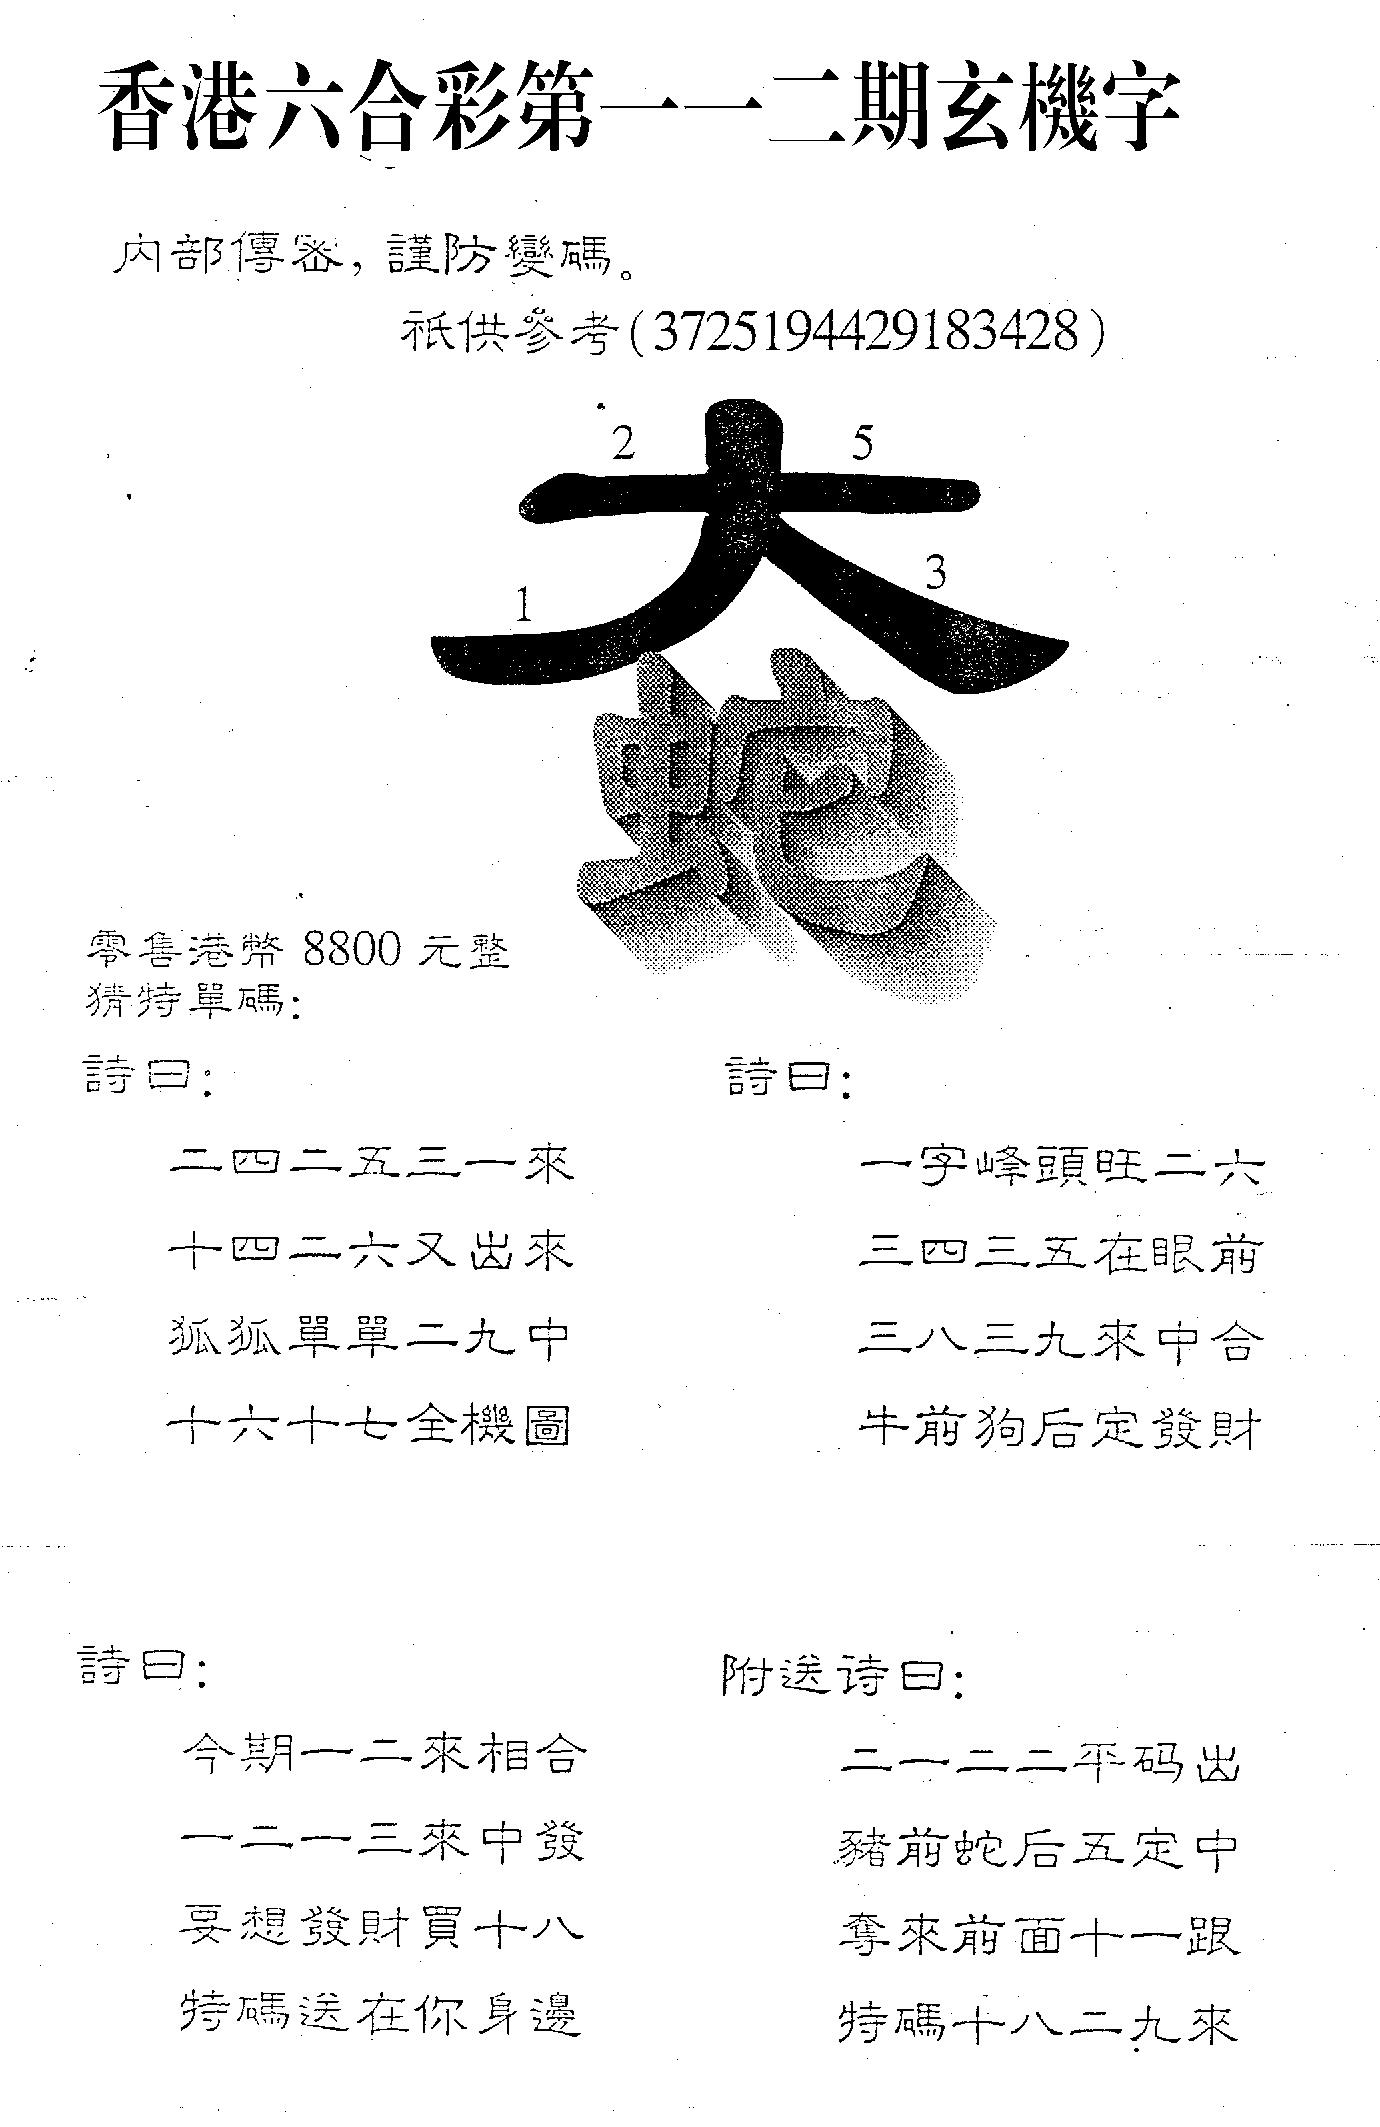 香港六合彩第一一二期玄機字
內部傳密，謹防變碼。
祇供參考(3725194429183428)
2 5
大
1 3
蛇
零售港幣 8800 元整
猜特單碼：
詩曰：
二四二五三一來
十四二六又出來
狐狐單單二九中
十六十七全機圖
詩曰：
一字峰頭旺二六
三四三五在眼前
三八三九來中合
牛前狗后定發財
詩曰：
今期一二來相合
一二一三來中發
要想發財買十八
特碼送在你身邊
附送诗曰：
二一二二平码出
豬前蛇后五定中
奪來前面十一跟
特碼十八二九來